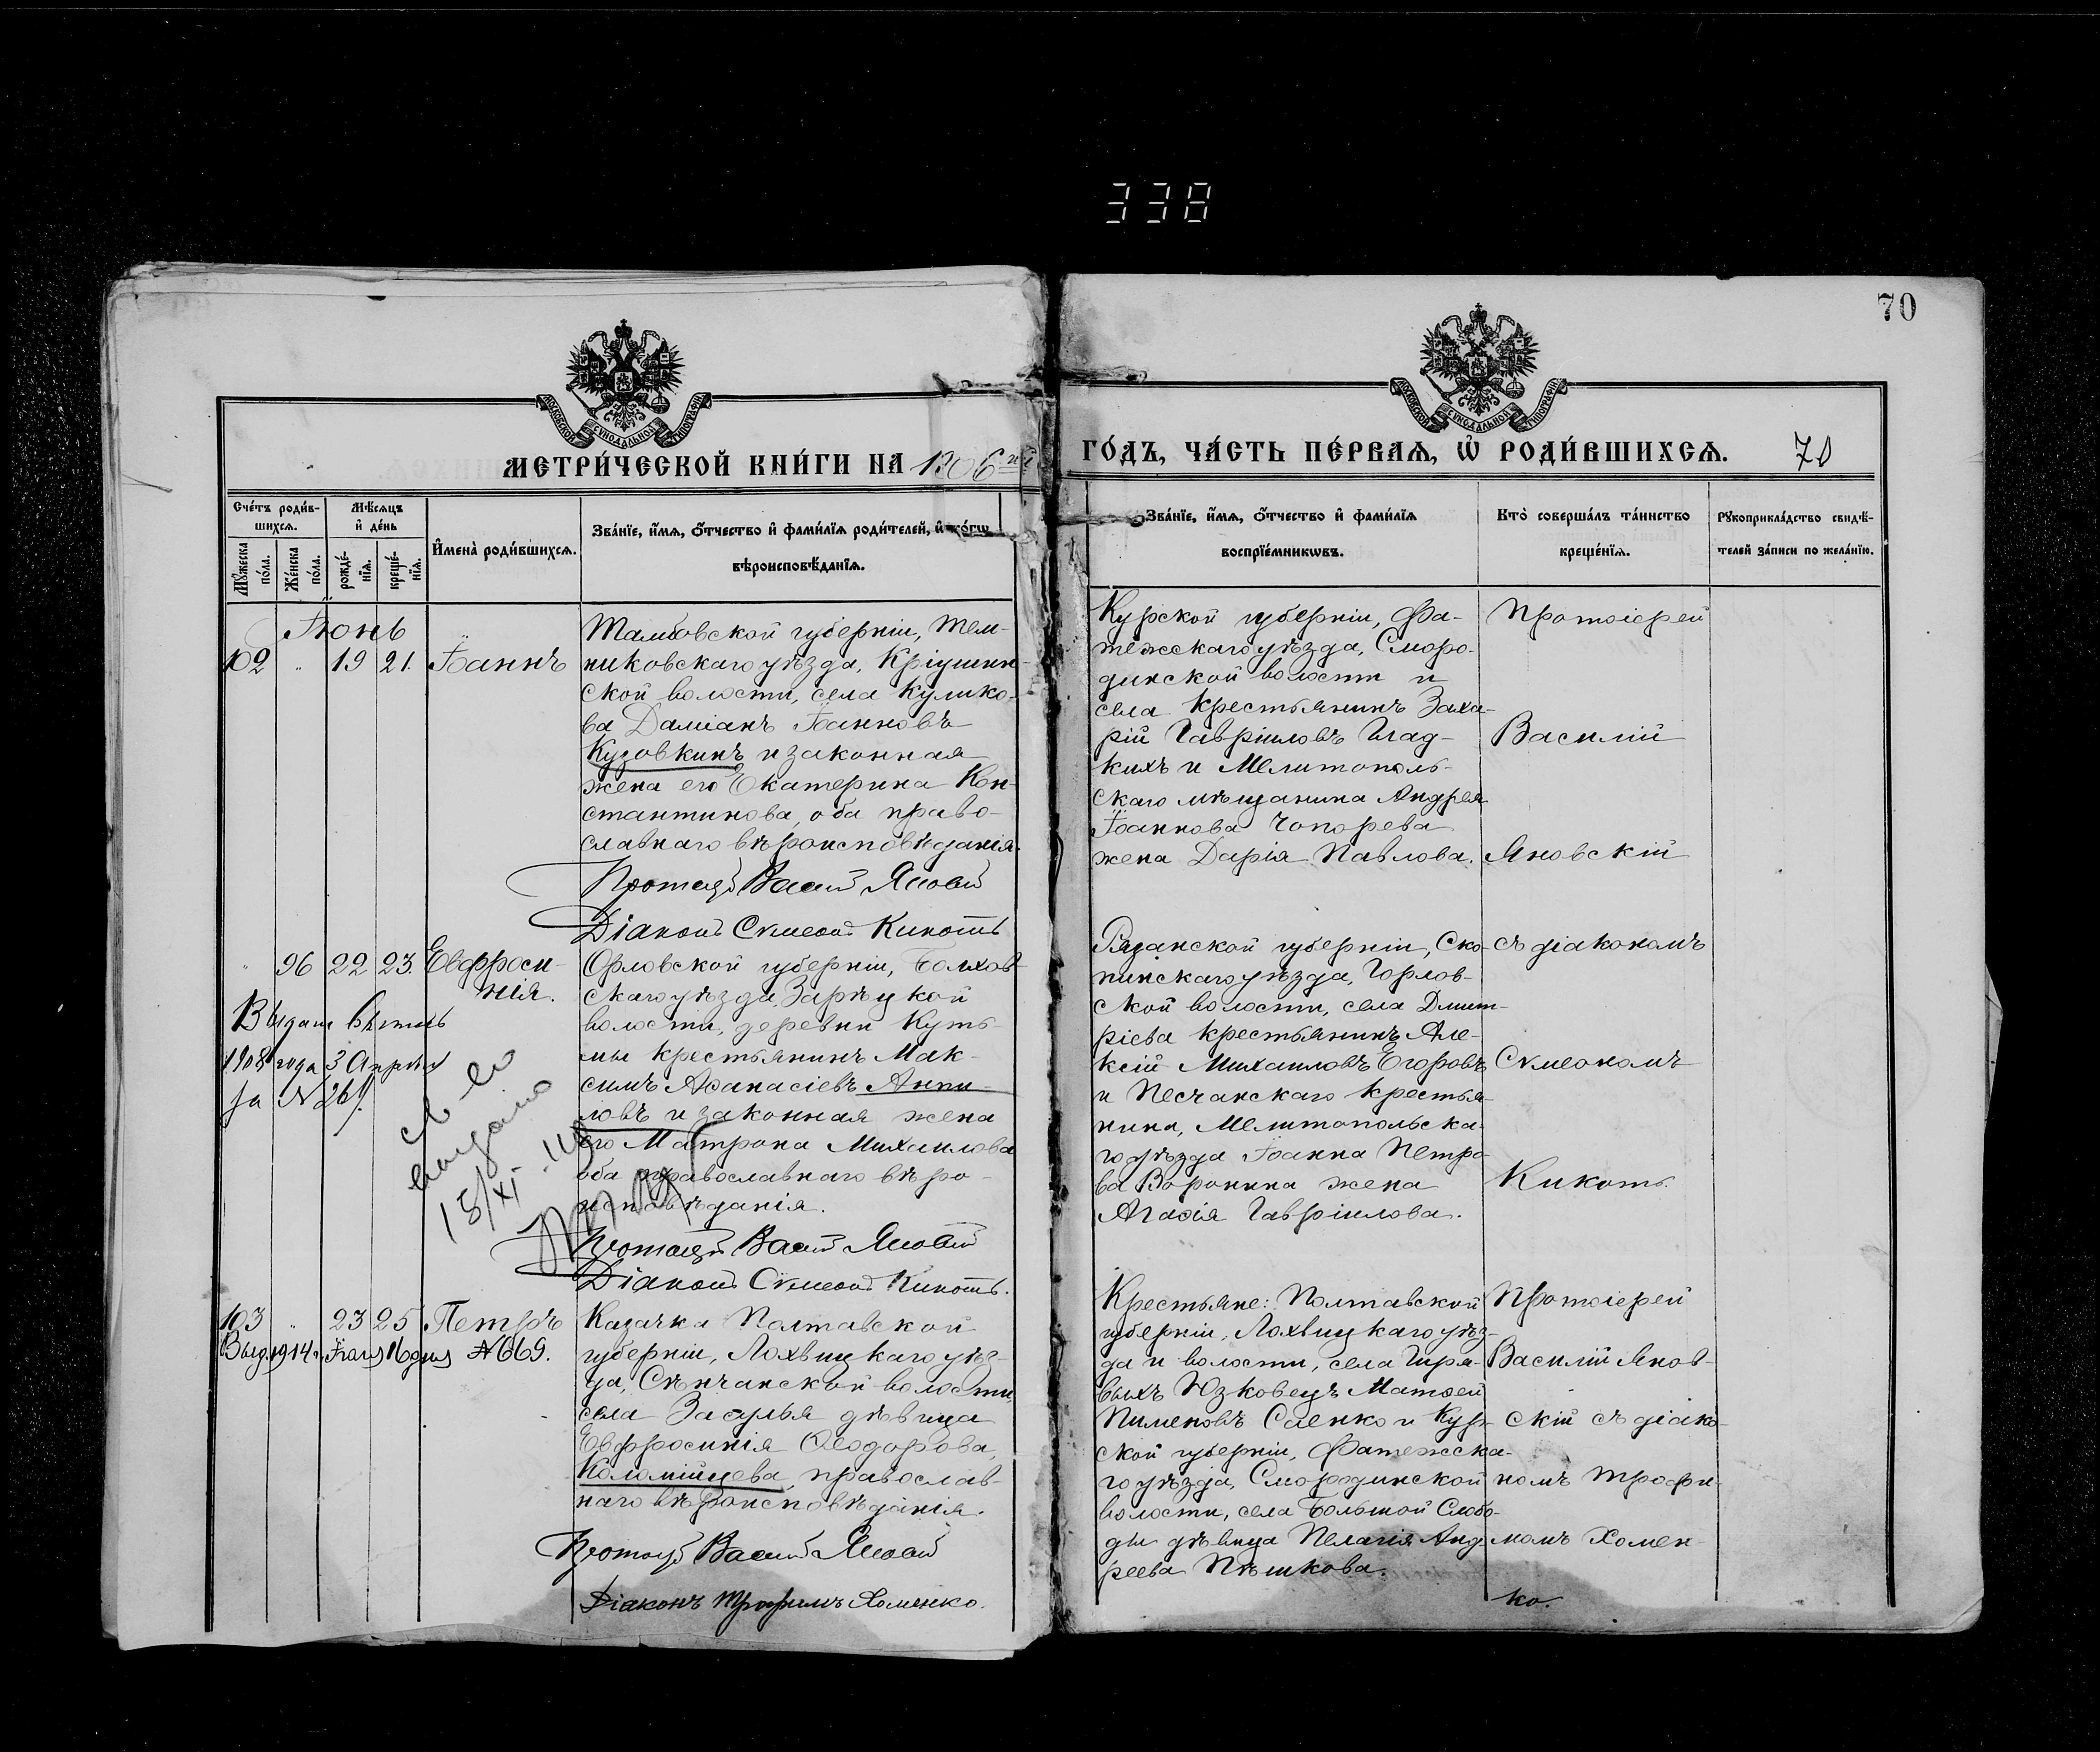 338
70
МОСКОВСКОЙ СѴНОДАЛЬНОЙ ТИПОГРАФІИ
МОСКОВСКОЙ СѴНОДАЛЬНОЙ ТИПОГРАФІИ
МЕТРИ́ЧЕСКОЙ КНИ́ГИ НА 1906 й
ГО́ДЪ, ЧА́СТЬ ПЕ́РВАѦ, Ѡ҆ РОДИ́ВШИХСѦ.
70
Сче́тъ роди́в-
шихсѧ.
Мѣ́сѧцъ
и҆ де́нь
Мꙋ́жеска по́ла.
Же́нска по́ла.
рожде́-нїѧ.
креще́-нїѧ.
И҆мена̀ роди́вшихсѧ.
Зва́нїе, и҆́мѧ, ѻ҆́тчество и҆ фами́лїѧ роди́телей, и҆ ко́гѡ
вѣроисповѣ́данїѧ.
Зва́нїе, и҆́мѧ, ѻ҆́тчество и҆ фами́лїѧ
воспрїе́мникѡвъ.
Кто̀ соверша́лъ та́инство
креще́нїѧ.
Рꙋкоприкла́дство свидѣ́-
телей за́писи по жела́нїю.
Іюнь
102 " 19 21. Іоаннъ
Тамбовской губерніи, Тем-
никовскаго уѣзда, Кріушин-
ской волости, села Кулико-
ва Даміанъ Іоанновъ
Кузовкинъ и законная
жена его Екатерина Кон-
стантинова, оба право-
славнаго вѣроисповѣданія.
Діаконъ Сѵмеонъ Кикоть
Курской губерніи, Фа-
тежскаго уѣзда, Сморо-
динской волости и
села крестьянинъ Заха-
рій Гавріиловъ Глад-
кихъ и Мелитополь-
скаго мѣщанина Андрея
Іоаннова Чопорева
жена Дарія Павлова.
Протоіерей
Василій
Яновскій
" 96 22 23. Евфроси-
нія.
Выдана выпись
1908 года 3 Апрѣля
за № 261.
св во
выдано
18/XI
Орловской губерніи, Болхов-
скаго уѣзда, Зарѣцкой
волости, деревни Куть-
мы крестьянинъ Мак-
симъ Аѳанасіевъ Аники-
ловъ и законная жена
его Матрона Михаилова
оба православнаго вѣро-
исповѣданія.
Діаконъ Сѵмеонъ Кикоть.
Рязанской губерніи, Ско-
пинскаго уѣзда, Горлов-
ской волости, села Дмит-
ріева крестьянинъ Але-
ксій Михаиловъ Егоровъ
и Песчанскаго крестья-
нина, Мелитопольска-
го уѣзда Іоанна Петро-
ва Воронина жена
Агаѳія Гавріилова.
съ діакономъ
Сѵмеономъ
Кикоть.
103 " 23 25 Петръ
Выд. 1914 г. 16 дня № 669.
Казачка Полтавской
губерніи, Лохвицкаго уѣз-
да, Сѣнчанской волости,
села Засулья дѣвица
Евфросинія Ѳеодорова
Коломійцева, православ-
наго вѣроисповѣданія.
Діаконъ Трофимъ Хоменко.
Крестьяне: Полтавской
губерніи, Лохвицкаго уѣз-
да и волости, села Гиря-
выхъ Юзковецъ Матѳей
Пименовъ Саенко и Кур-
ской губерніи, Фатежска-
го уѣзда, Смородинской
волости, села Большой Слобо-
ды дѣвица Пелагія Анд-
реева Пѣшкова.
Протоіерей
Василій Янов-
скій съ діако-
номъ Трофи-
момъ Хомен-
ко.